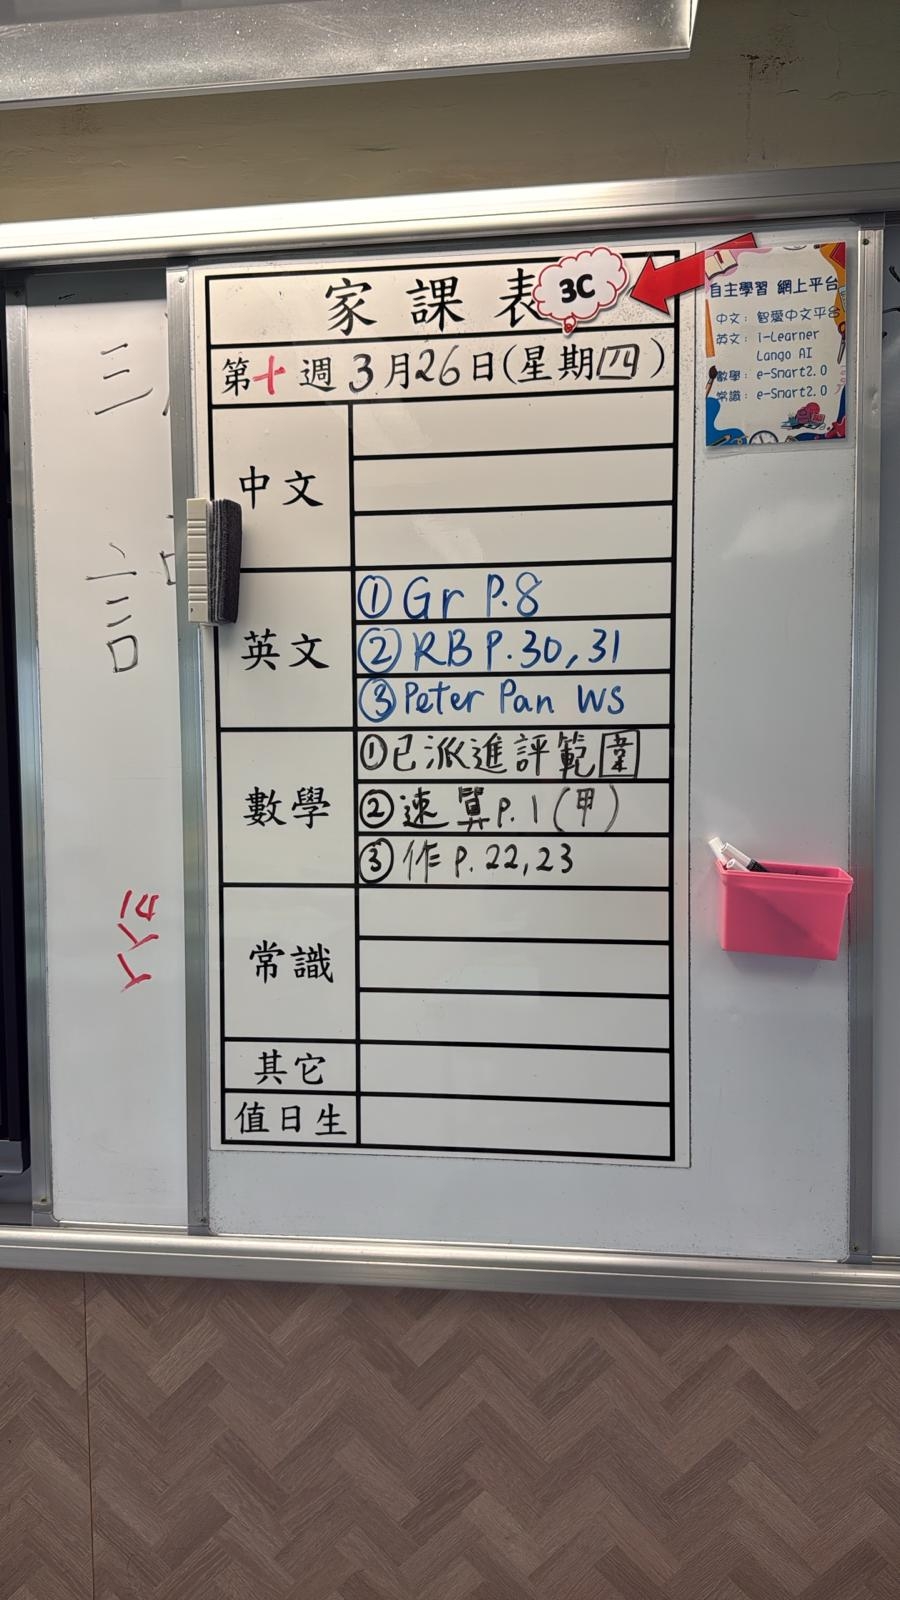 家課表
3C
第十週3月26日(星期四)
中文
英文
①Gr P.8
②RB P.30,31
③Peter Pan WS
數學
①已派進評範圍
②速算P.1(甲)
③作P.22,23
常識
其它
值日生
自主學習 網上平台
中文: 智愛中文平台
英文: i-Learner
Lango AI
數學: e-Smart2.0
常識: e-Smart2.0
三
言